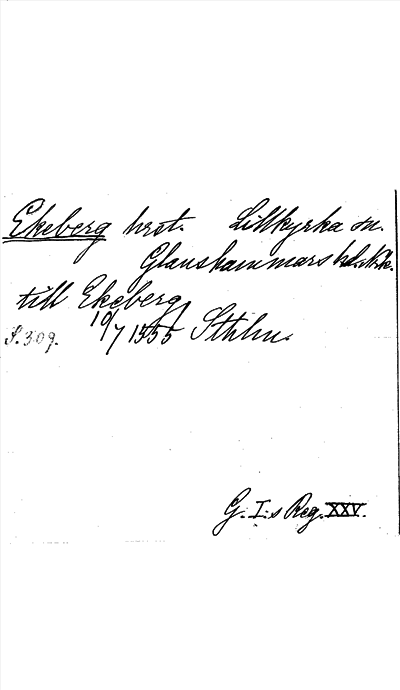 Ekeberg hrst. Lillkyrka sn.
Glanshammars hd. Nke.
till Ekeberg
10/7 1555 Sthlm.
S. 309.
G. I:s Reg. XXV.